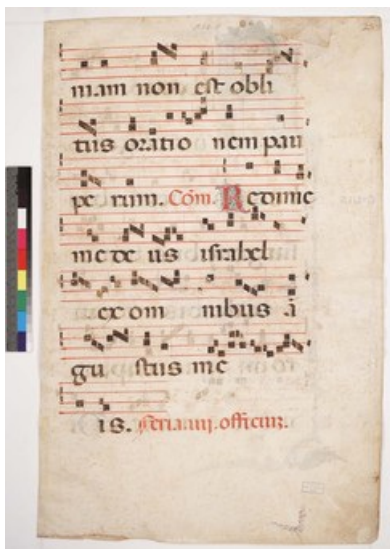 mam non est obli
tus oratio nem pau
pe rum. Com. Redime
me de us israhel
ex om nibus ā
gu stius me
is. feria iiij. officium.